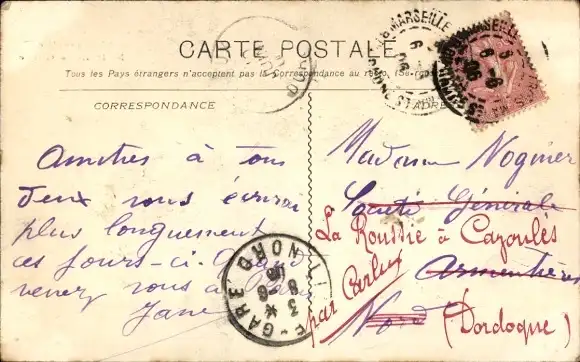 CARTE POSTALE
Tous les Pays étrangers n'acceptent pas la Correspondance au recto. (Se
CORRESPONDANCE
L'ADRE
MARSEILLE
Amitiés à tous
deux vous écrirai
plus longuement
ces jours-ci. Quand
venez vous à
Jane
Madame Noguier
Société Générale
La Roussie à Cazoulès
par Carlux
Armentières
Nord
(Dordogne)
LILLE-GARE
NORD
3 * 8-6
06